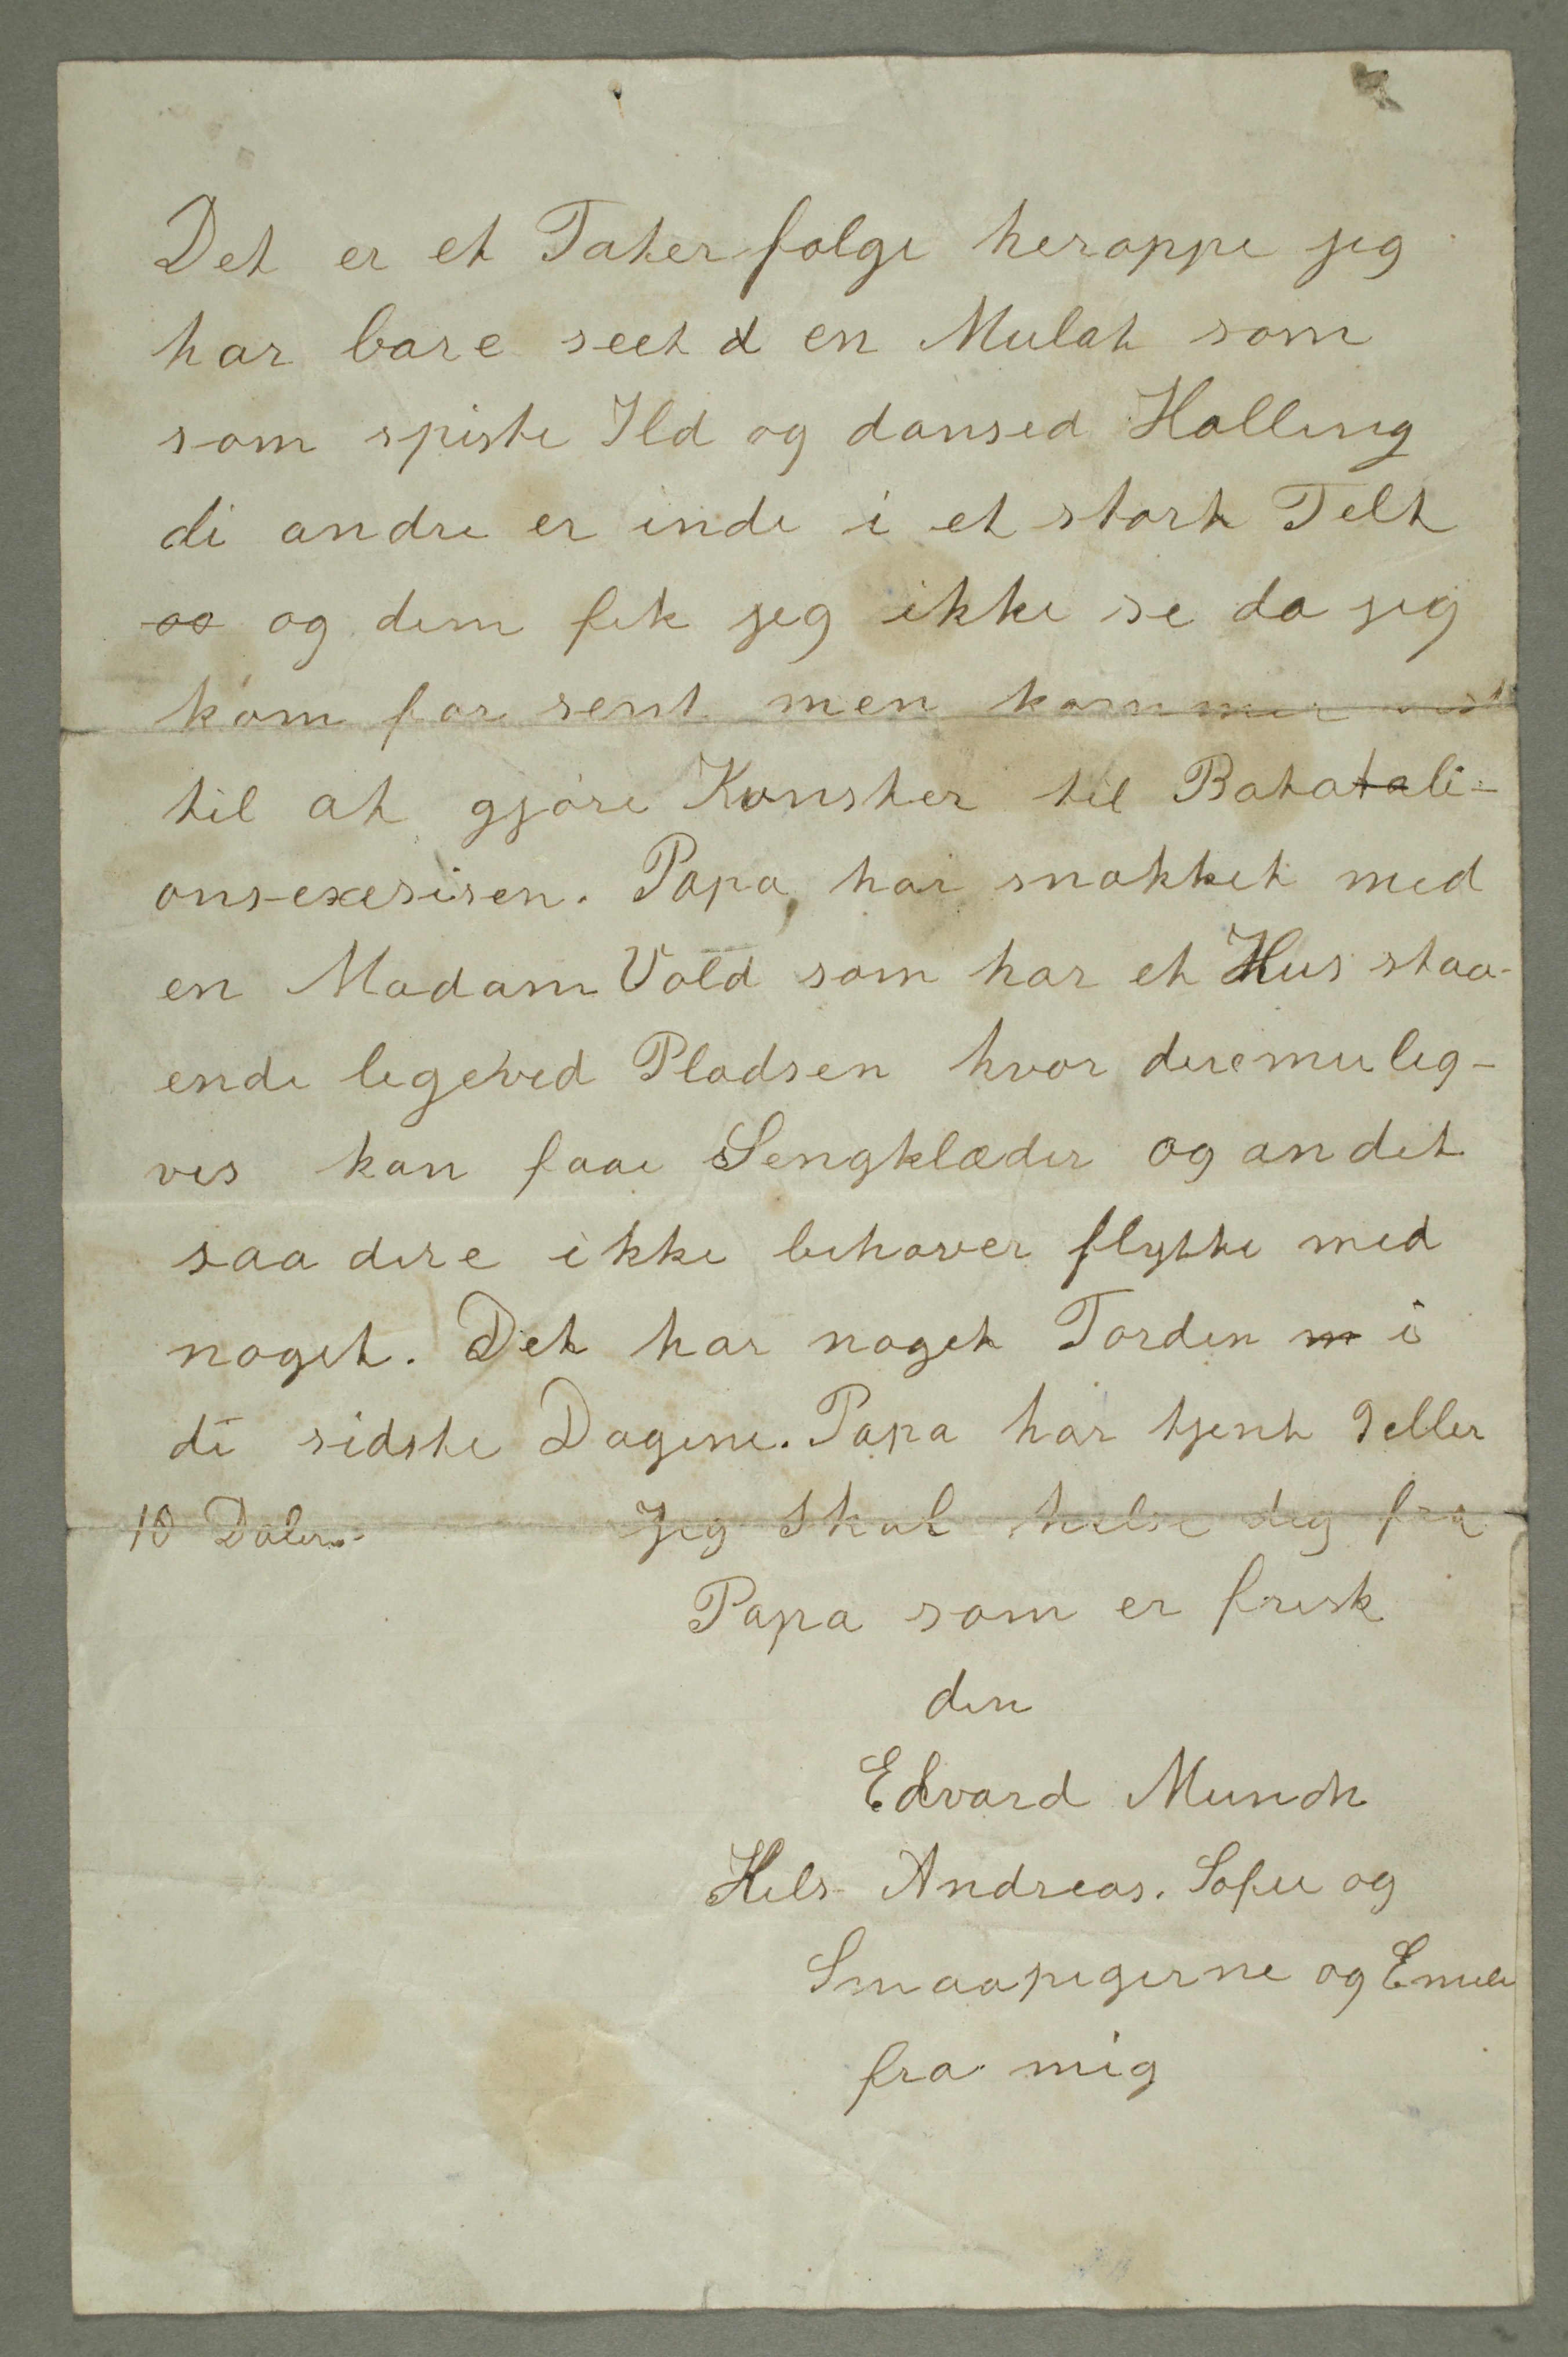 Det er et Taterfølge heroppe jeg
har bare seet d en Mulat som
som spiste Ild og dansed Halling
di andre er inde i et stort Telt
oo og dem fik jeg ikke se da jeg
kom for sent men kommer vist
til at gjøre Kunster til Batatali-
onsexersisen. Papa har snakket med
en Madam Vold som har et Hus staa-
ende ligeved Pladsen hvor deremulig-
vis kan faae Sengklæder og andet
saa dere ikke behøver flytte med
noget. Det har noget Torden m i
di sidste Dagene. Papa har tjent 9 eller
10 Daler.- Jeg skal helse dig fra
Papa som er frisk
din
Edvard Munch
Hils Andreas. Sofie og
Smaapigerne og Emilie
fra mig